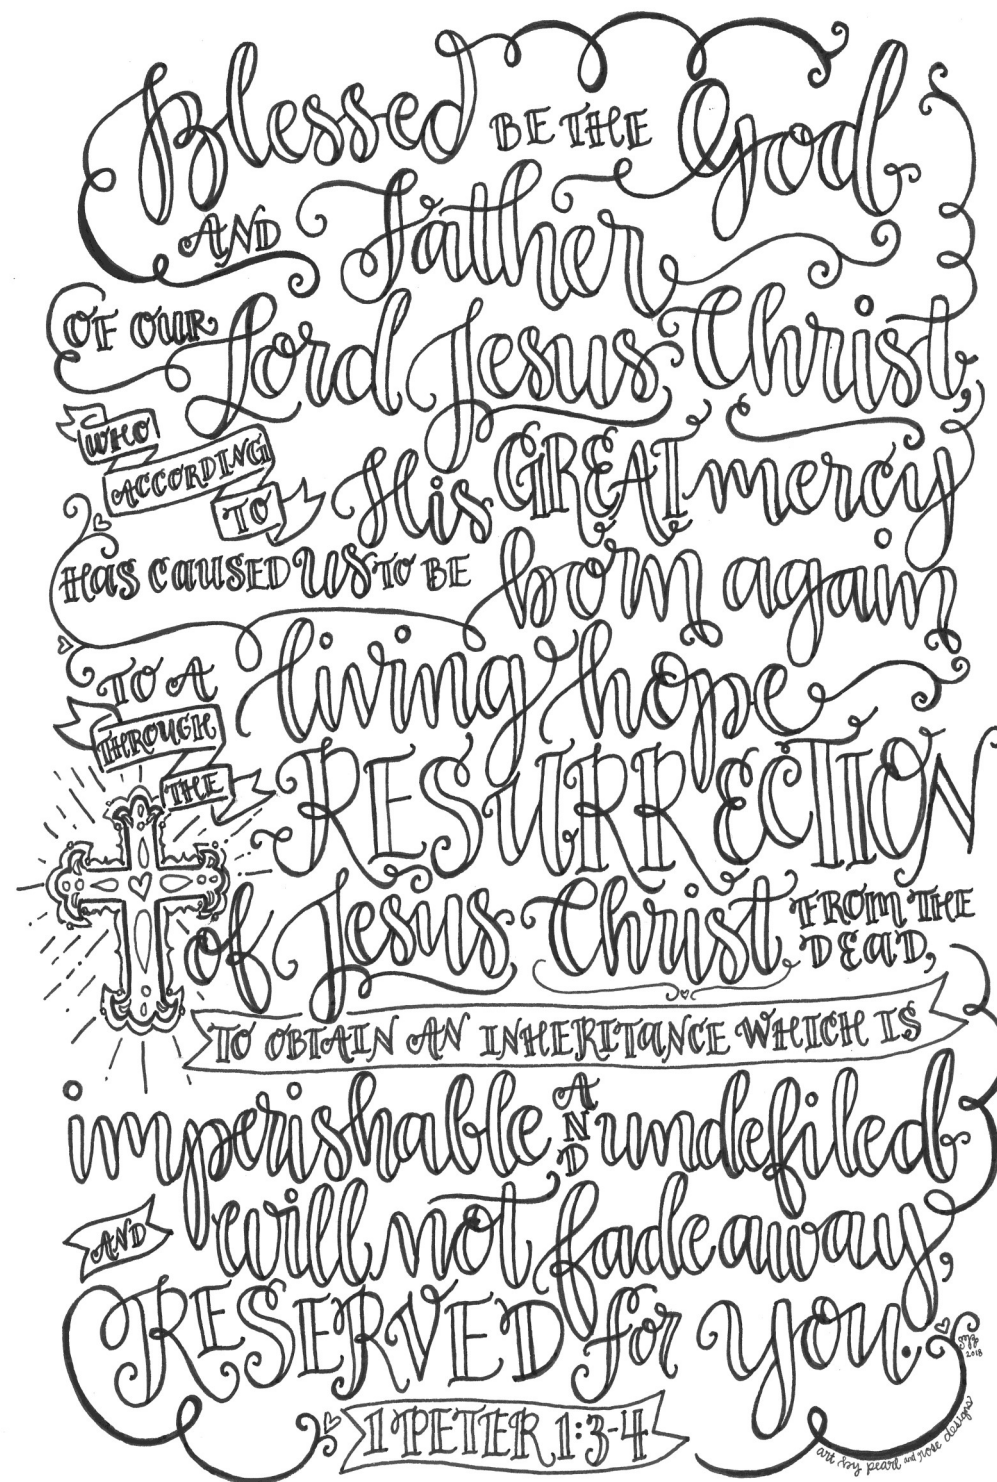 Blessed BE THE God
AND Father
OF OUR Lord Jesus Christ,
WHO
ACCORDING
TO His GREAT mercy
HAS CAUSED US TO BE born again
TO A living hope
THROUGH
THE RESURRECTION
of Jesus Christ FROM THE
DEAD,
TO OBTAIN AN INHERITANCE WHICH IS
imperishable AND undefiled
AND will not fade away,
RESERVED for you.
2018
1 PETER 1:3-4
art by pearl and rose designs